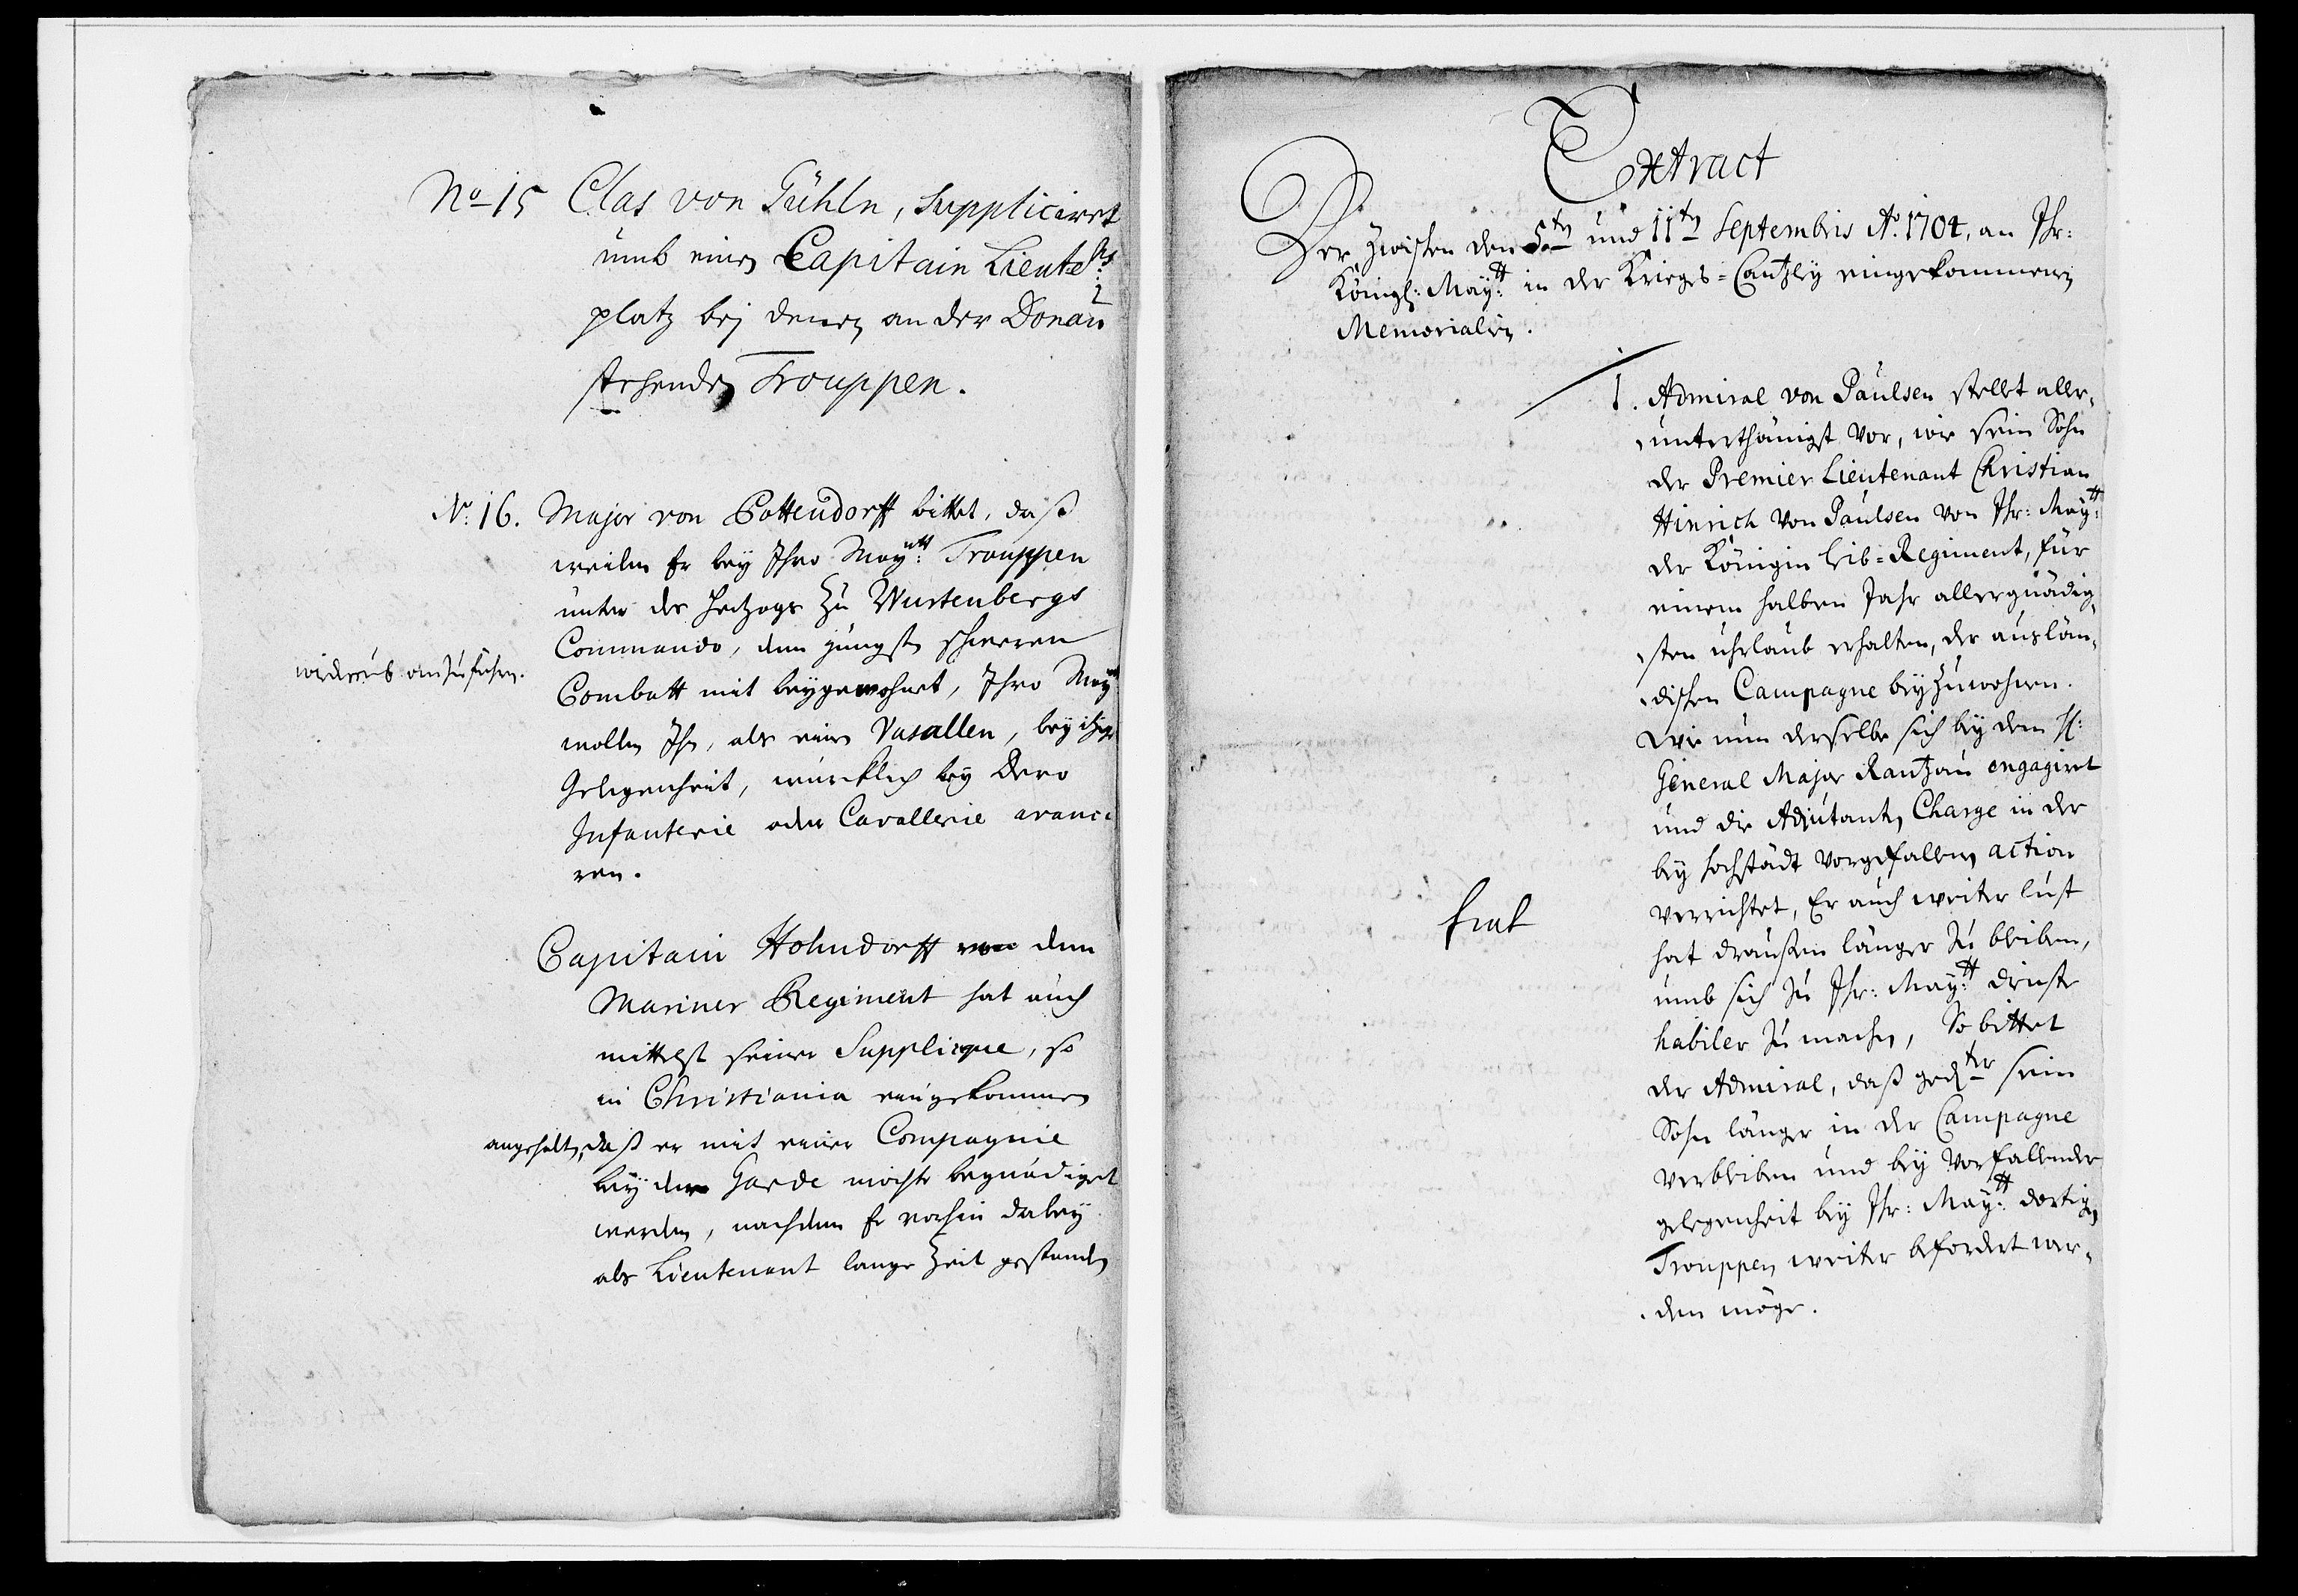 No 15 Clas von Gühln, Suppliciret
umb einen Capitain Lieuts:
platz bej denen an der Donau
stehenden Trouppen.
No: 16. Major von Pottendorff bittet, daß
weilen Er bey Ihro Maytt: Trouppen
unter des Hertzogs zu Wurtenbergs
Commando, dem jüngst schweren
widerumb anzuführen.
Combatt mit beygewohnet, Ihro Maytt
wollen Ihn, als einen Vasallen, bey itziger
Gelegenheit, würcklich bey Dero
Infanterie oder Cavallerie avanci-
ren.
Capitain Hohndorff von dem
Mariner Regiment hat auch
mittelst seiner Supplicque, so
in Christiania eingekommen
angehalten, daß er mit einer Compagnie
bey der Garde möchte begnädiget
werden, nachdem Er vorhin dabey
als Lieutenant lange Zeit gestanden
Extract
Der zwischen den 5ten und 11ten Septembris Ao. 1704, an Ihr:
Königl: Maytt: in der Kriegs-Cantzley eingekommenen
Memorialien.
1. Admiral von Paulsen stellet aller-
unterthänigst vor, wie sein Sohn
der Premier Lieutenant Christian
Hinrich von Paulsen von Ihr: Maytt:
der Königin Leib-Regiment, für
einem halben Jahr allergnädig-
sten uhrlaub erhalten, der auslän-
dischen Campagne beyzuwohnen.
Wie nun derselbe sich bey dem H:
General Major Rantzau engagiret
und die Adjutanten Charge in der
bey Hochstädt vorgefallenen action
verrichtet, Er auch weiter lust
hat draußen länger zu bleiben,
umb sich zu Ihr: Maytt: dienste
habiler zu machen, So bittet
der Admiral, daß gedter sein
Sohn länger in der Campagne
verbleiben und bey vorfallender
gelegenheit bey Ihr: Maytt: dortigen
Trouppen weiter befordert wer-
den möge.